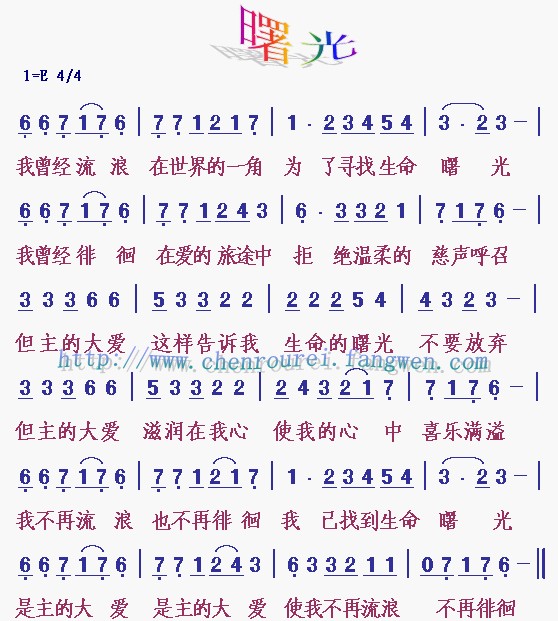 曙光
1=E 4/4
6 6 7 1 7 6 | 7 7 1 2 1 7 | 1 · 2 3 4 5 4 | 3 · 2 3 － |
我曾经流浪 在世界的一角 为了寻找生命 曙光
6 6 7 1 7 6 | 7 7 1 2 4 3 | 6 · 3 3 2 1 | 7 1 7 6 － |
我曾经徘徊 在爱的旅途中 拒绝温柔的 慈声呼召
3 3 3 6 6 | 5 3 3 2 2 | 2 2 2 5 4 | 4 3 2 3 － |
但主的大爱 这样告诉我 生命的曙光 不要放弃
http://www.chenrourei.fangwen.com
3 3 3 6 6 | 5 3 3 2 2 | 2 4 3 2 1 7 | 7 1 7 6 － |
但主的大爱 滋润在我心 使我的心中 喜乐满溢
6 6 7 1 7 6 | 7 7 1 2 1 7 | 1 · 2 3 4 5 4 | 3 · 2 3 － |
我不再流浪 也不再徘徊 我已找到生命 曙光
6 6 7 1 7 6 | 7 7 1 2 4 3 | 6 3 3 2 1 1 | 0 7 1 7 6 － ‖
是主的大爱 是主的大爱 使我不再流浪 不再徘徊